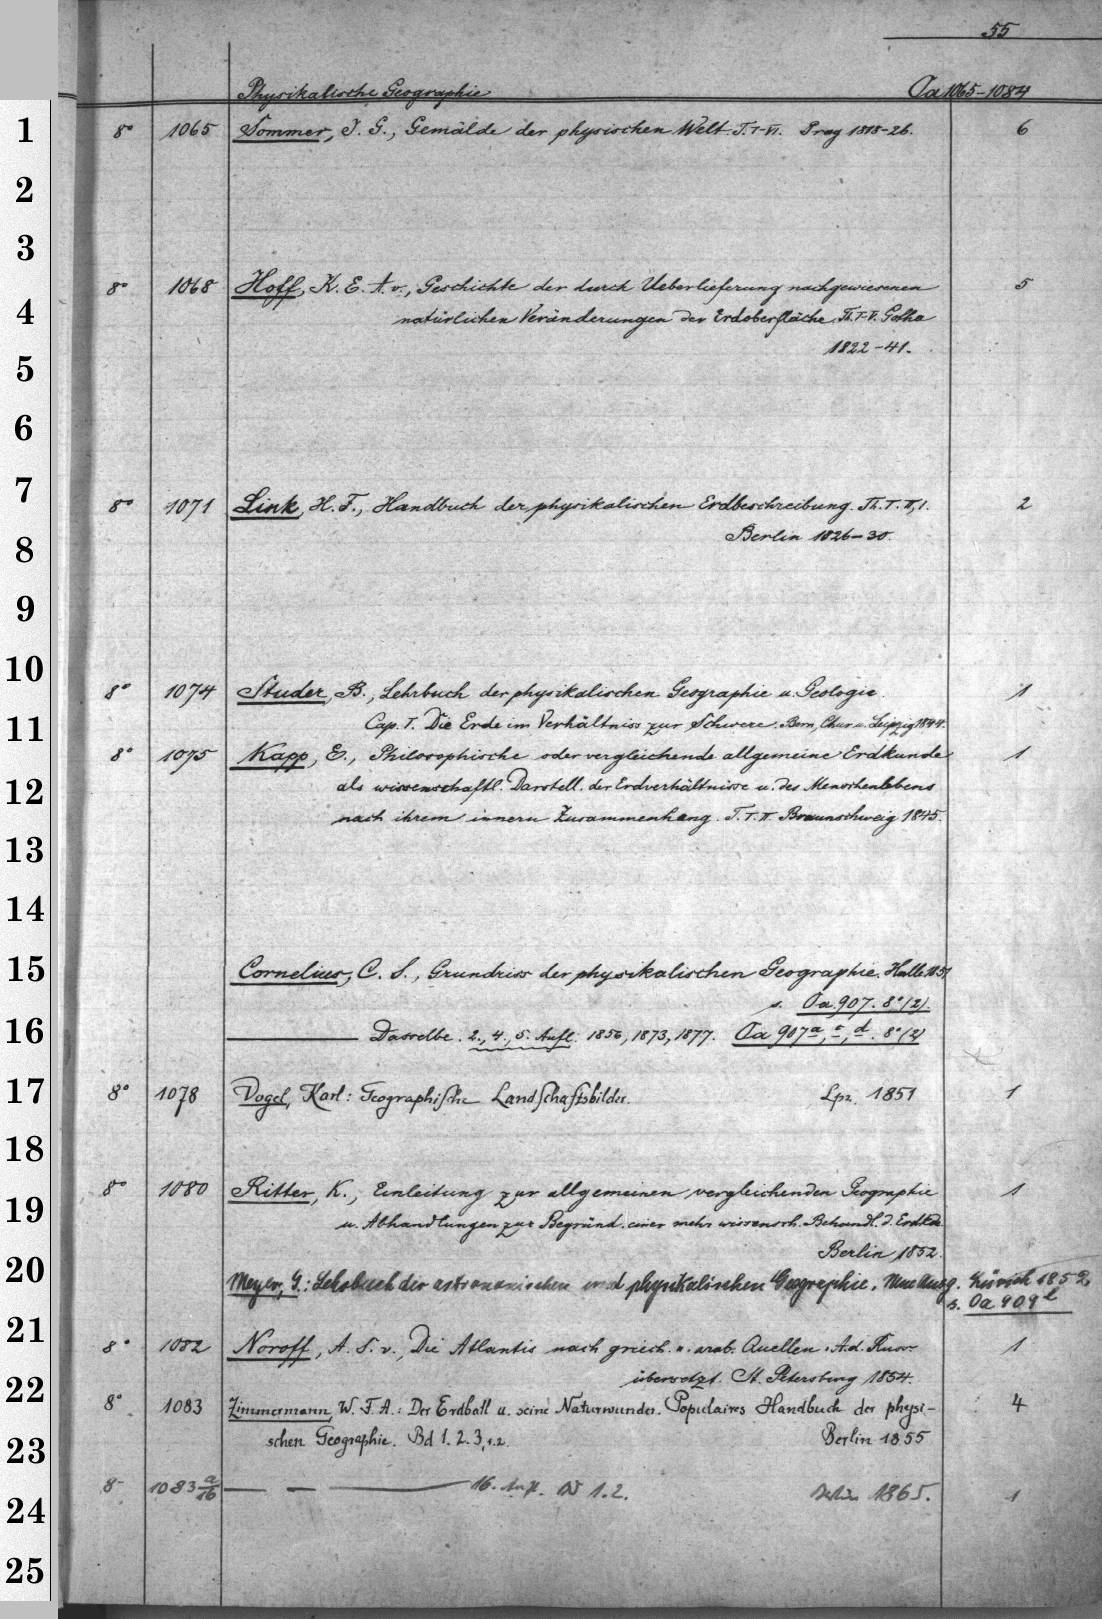 55
Physikalische Geographie Oa 1065-1084
1 8° 1065 Sommer, J. G., Gemälde der physischen Welt T. I-VI. Prag 1818-26. 6
2
3
8° 1068 Hoff, K. E. A. v., Geschichte der durch Ueberlieferung nachgewiesenen 5
4 natürlichen Veränderungen der Erdoberfläche. Th. I-V. Gotha
1822-41.
5
6
7 8° 1071 Link, H. F., Handbuch der physikalischen Erdbeschreibung. Th. I. II,1. 2
Berlin 1826-30.
8
9
10
8° 1074 Studer, B., Lehrbuch der physikalischen Geographie u. Geologie. 1
11 Cap. I. Die Erde im Verhältniss zur Schwere. Bern, Chur u. Leipzig 1844.
8° 1075 Kapp, E., Philosophische oder vergleichende allgemeine Erdkunde 1
12 als wissenschaftl. Darstell. der Erdverhältnisse u. des Menschenlebens
nach ihrem innern Zusammenhang. T. I. II. Braunschweig 1845.
13
14
15 Cornelius, C. S., Grundriss der physikalischen Geographie. Halle 1851
s. Oa 907. 8° (2).
16 Dasselbe. 2., 4., 5. Aufl. 1856, 1873, 1877. Oa 907 a, c, d. 8° (2)
17 8° 1078 Vogel, Karl: Geographische Landschaftsbilder. Lpz. 1851 1
18
8° 1080 Ritter, K., Einleitung zur allgemeinen vergleichenden Geographie 1
19 u. Abhandlungen zur Begründ. einer mehr wissensch. Behandl. d. Erdkde.
Berlin 1852.
20 Meyer, G.: Lehrbuch der astronomischen und physikalischen Geographie. Neue Ausg. Zürich 1852,
s. Oa 909 l
21 8° 1082 Noroff, A. S. v., Die Atlantis nach griech. u. arab. Quellen. A. d. Russ. 1
übersetzt. St. Petersburg 1854.
22 8° 1083 Zimmermann, W. F. A.: Der Erdball u. seine Naturwunder. Populaires Handbuch der physi- 4
23 schen Geographie. Bd 1. 2. 3,1.2. Berlin 1855
8° 1083 a/16 — — — 16. Aufl. Bd 1.2. Berlin 1865. 1
24
25